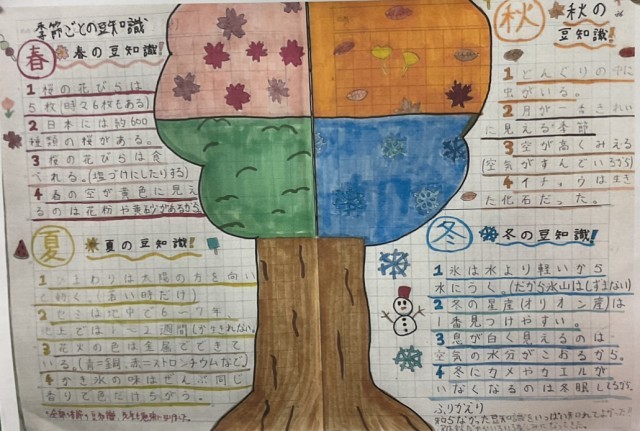 季節ごとの豆知識
春 春の豆知識!
1 桜の花びらは
5枚(時々6枚もある)
2 日本には約600
種類の桜がある。
3 桜の花びらは食
べれる。(塩づけにしたりする)
4 春の空が黄色に見え
るのは花粉や黄砂があるから
夏 夏の豆知識!
1 ひまわりは太陽の方を向い
て動く。(若い時だけ)
2 セミは地中で6~7年、
地上では1~2週間
3 花火の色は金属でできて
いる。(青=銅、赤=ストロンチウムなど)
4 かき氷の味はぜんぶ同じ
香りで色だけちがう。
秋 秋の
豆知識!
1 どんぐりの中に
虫がいる。
2 月が一番きれい
に見える季節
3 空が高くみえる
(空気がすんでいるから)
4 イチョウは生き
た化石だった。
冬 冬の豆知識!
1 氷は水より軽いから
水にうく。(だから氷山はしずまない)
2 冬の星座(オリオン座)は
1番見つけやすい。
3 息が白く見えるのは
空気の水分がこおるから。
4 冬にカメやカエルが
いなくなるのは冬眠してるから。
ふりかえり
知らなかった豆知識をいっぱい